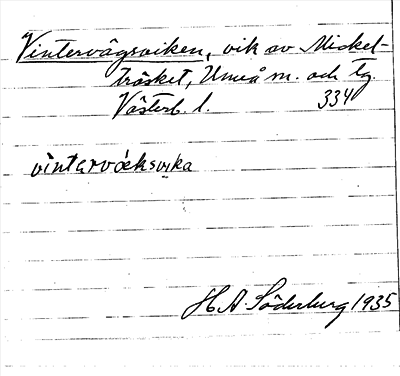 Vintervägsviken, vik av Mickel-
träsket, Umeå m. och tg.
Västerb. l. 334
vìntərvǻeksvika
H. A. Söderburg 1935